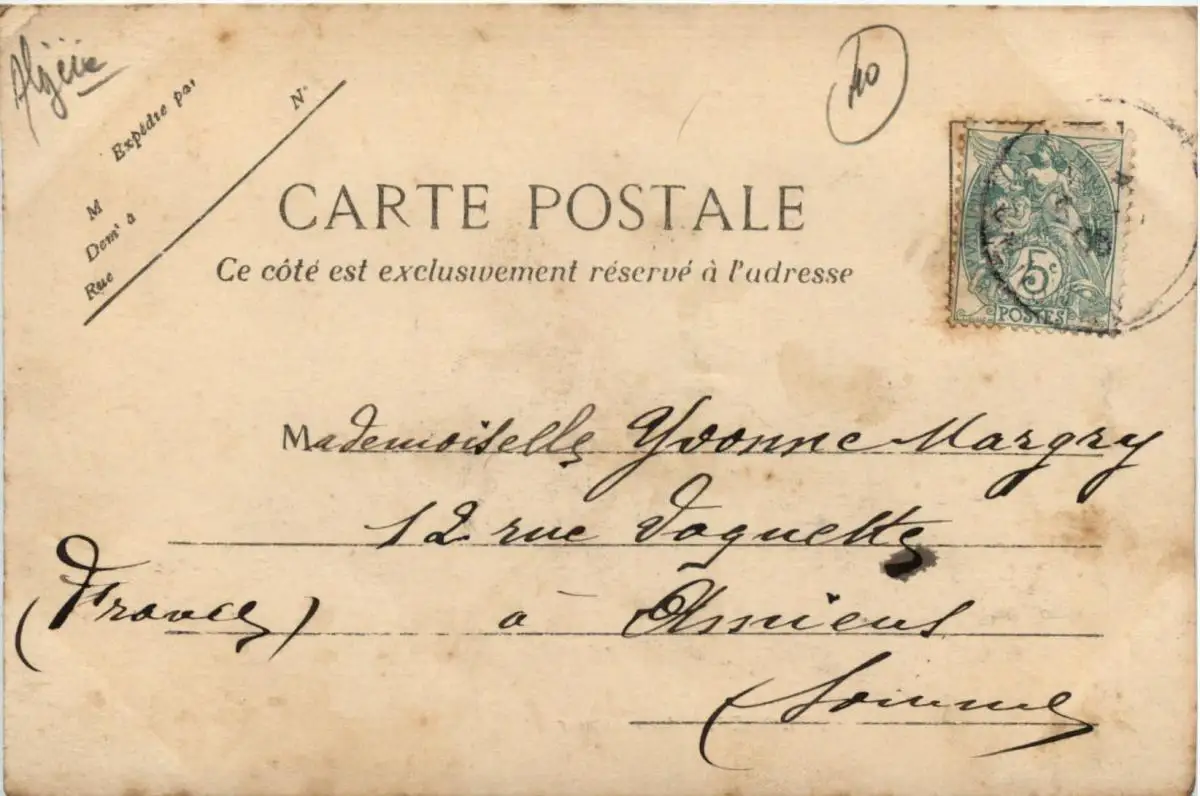 Algérie
40
Expédié par
M
Demt à
Rue
N°
CARTE POSTALE
Ce côté est exclusivement réservé à l'adresse
5c
POSTES
Mademoiselle Yvonne Margry
12 rue Daquette
(France) à Amiens
(Somme